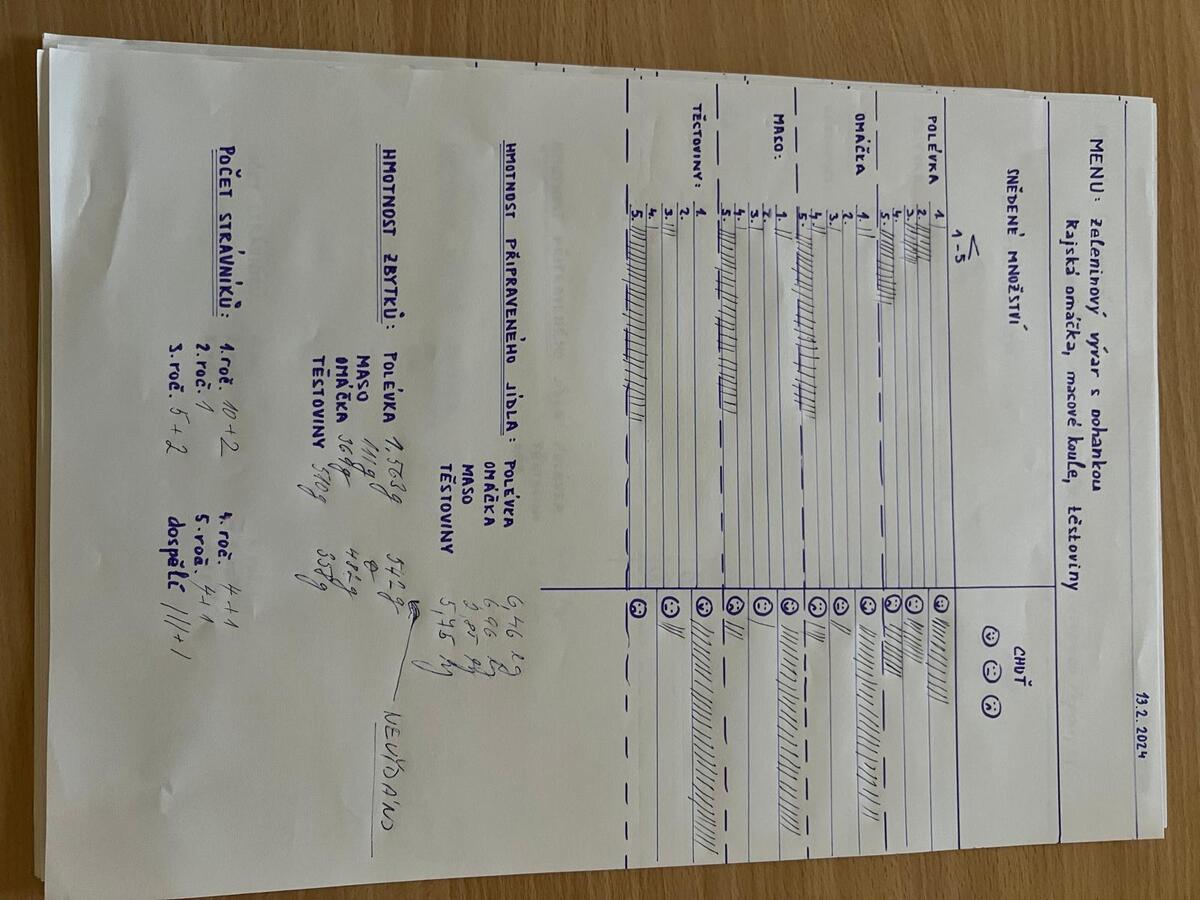 13.2.2024
MENU: zeleninový vývar s pohankou
Rajská omáčka, masové koule, těstoviny
SNĚDENÉ MNOŽSTVÍ
CHUŤ
1-5
POLÉVKA
1.
2.
3.
4.
5.
OMÁČKA
1.
2.
3.
4.
5.
MASO:
1.
2.
3.
4.
5.
TĚSTOVINY:
1.
2.
3.
4.
5.
HMOTNOST PŘIPRAVENÉHO JÍDLA: POLÉVKA 6,46 kg
OMÁČKA 6,96 kg
MASO
TĚSTOVINY 5,45 kg
HMOTNOST ZBYTKŮ: POLÉVKA 1,563g 542g NEVÝDÁNO
MASO 111g
OMÁČKA 369g 482g
TĚSTOVINY 510g 358g
POČET STRÁVNÍKŮ: 1. roč. 10+2 4. roč. 4+1
2. roč. 1 5. roč. 4+1
3. roč. 5+2 dospělí |||+1